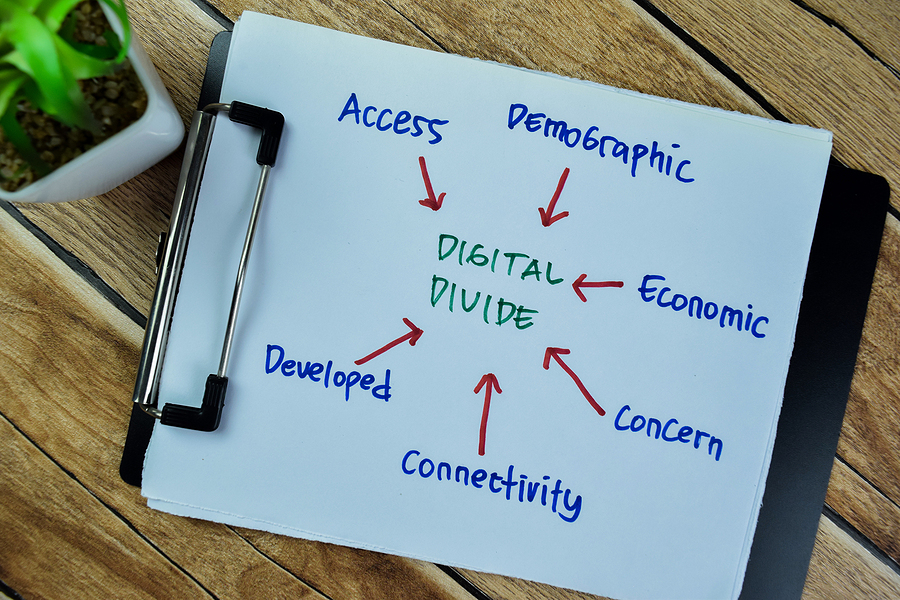 Access
DEmoGraphic
DIGITAL
DIVIDE
Economic
Developed
Concern
Connectivity